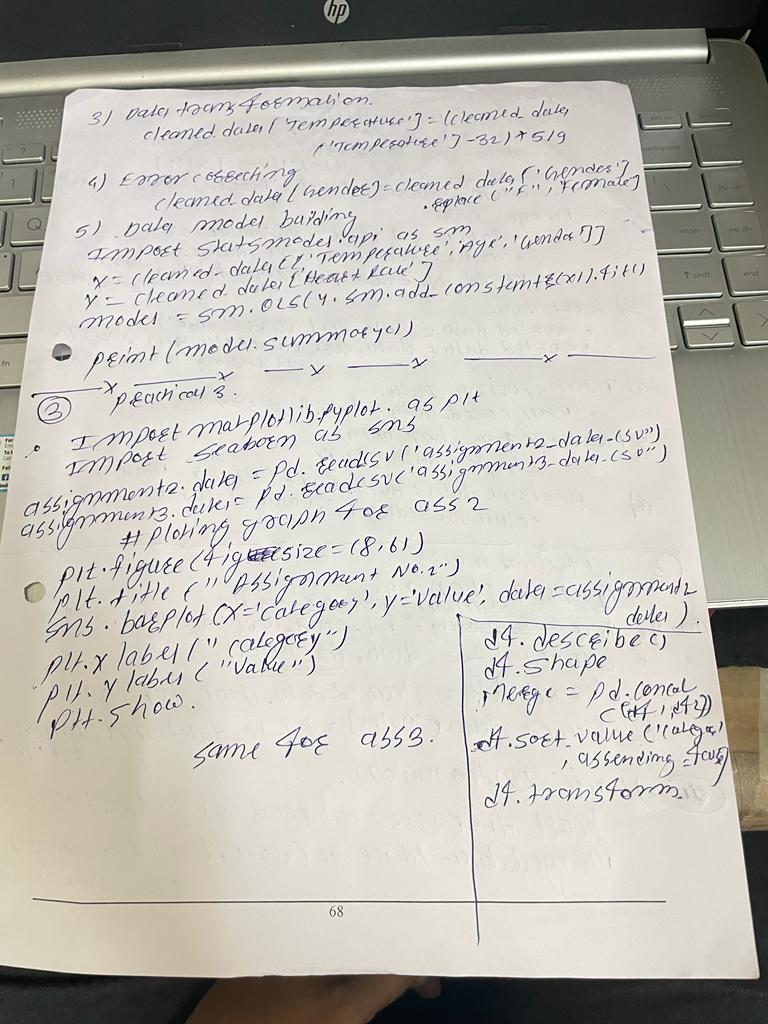 hp
3) Data transformation.
cleaned data['Temperature'] = (cleaned data
['Temperature'] - 32) * 5/9
4) Error correcting
cleaned data (Gender) = cleaned data ['Gender']
. replace ("F", Female]
5) Data model buiding
Import statsmodel.api as sm
X = cleaned-data [['Temperature', 'Age', 'Gender']]
Y = cleaned data ['Heart Rate']
model = sm. OLS(Y. sm. add-constant(x)).fit()
print (model. summary())
3
Practical 3.
Import matplotlib.pyplot. as plt
Import seaborn as sns
assignment2. data = pd. readcsv ('assignment2-data-csv")
assignment3. data = pd. readcsv ('assignment3-data-csv")
# Ploting graph for ass 2
plt. figure (figsize = (8,6)
plt. title (" Assignment No. 2")
sns. barplot (x='category', y='value', data = assignment2
data).
plt. x label (" category")
plt. y label ( "Value")
plt. show.
same for ass3.
df. describe()
df. shape
merge = pd. concat
([df1, df2])
df. sort. value ('categor
, assending = false)
df. transform.
68